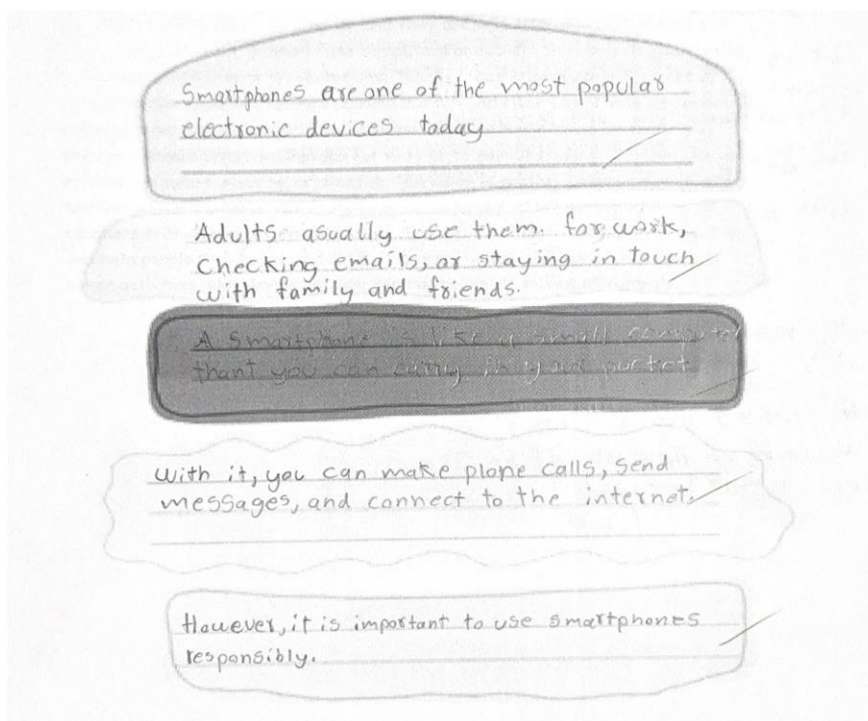 Smartphones are one of the most popular
electronic devices today
Adults asually use them. for work,
Checking emails, or staying in touch
with family and friends.
A Smartphone is like a small computer
thant you can carry in your
with it, you can make plone calls, send
messages, and connect to the internet.
However, it is important to use smartphones
responsibly.